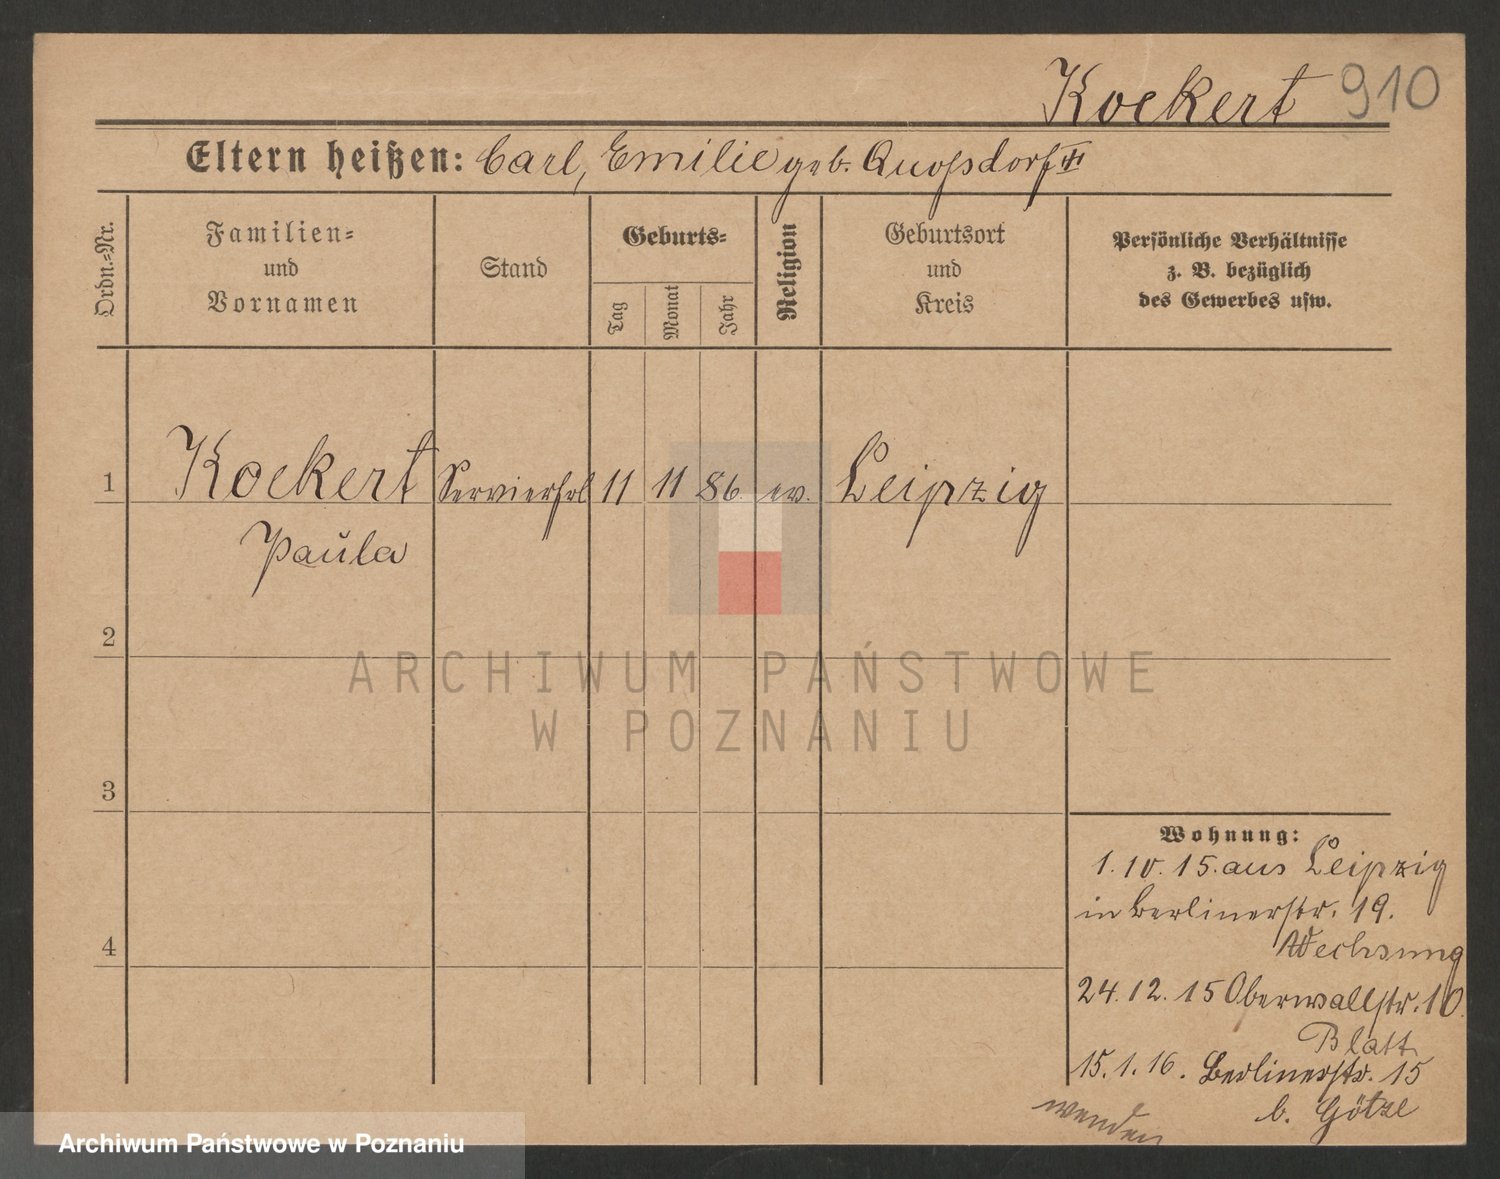 Koekert 910
Eltern heißen: Carl, Emilie geb. Quoßdorf
Ordn.=Nr.
Familien=
und
Vornamen
Stand
Geburts=
Tag
Monat
Jahr
Religion
Geburtsort
und
Kreis
Persönliche Verhältnisse
z. B. bezüglich
des Gewerbes usw.
1 Koekert Servierfrl 11 11 86. ev. Leipzig
Paula
2
3
4
Wohnung:
1. 10. 15. aus Leipzig
in Berlinerstr. 19.
Wechsung
24. 12. 15 Oberwallstr. 10.
Blatt
15. 1. 16. Berlinerstr. 15
b. Götze
wenden
ARCHIWUM PAŃSTWOWE
W POZNANIU
Archiwum Państwowe w Poznaniu